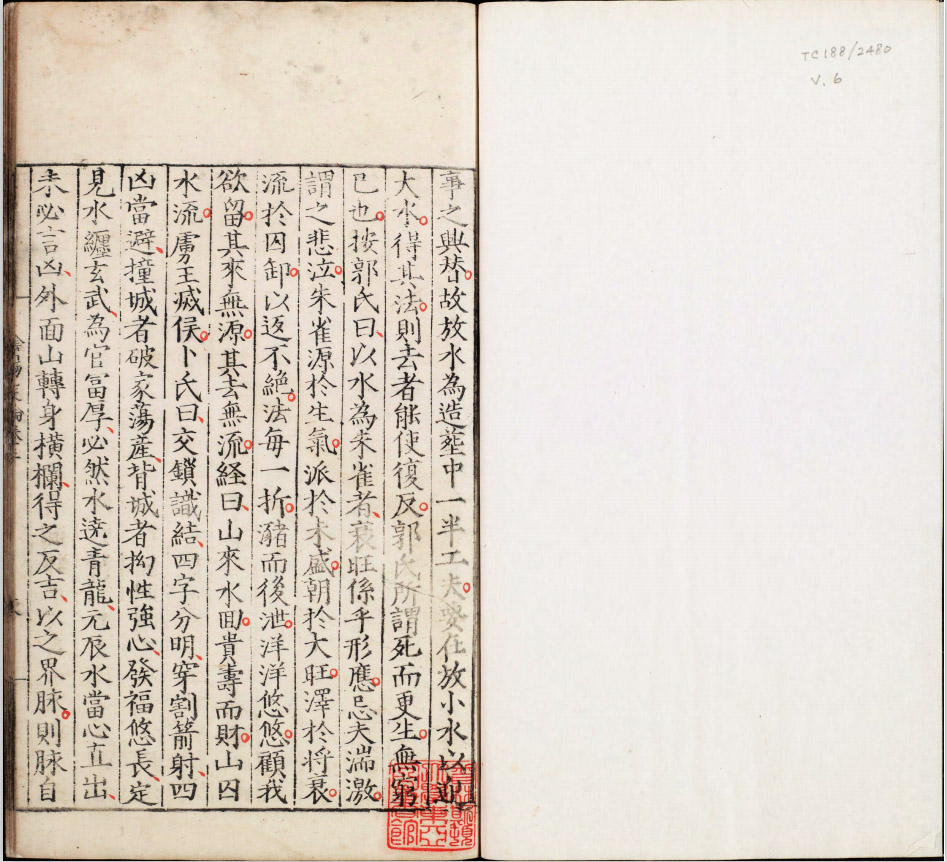 TC188/2480
V. 6
事之興替故放水為造塟中一半工夫要在放小水以迎
大水得其法則去者能使復反郭氏所謂死而更生無窮
已也按郭氏曰以水為朱雀者衰旺係乎形應忌夫湍激
謂之悲泣朱雀源於生氣派於未盛朝於大旺澤於将衰
流於囚卸以返不絶法每一折瀦而後泄洋洋悠悠顧我
欲留其來無源其去無流経曰山來水囬貴壽而財山囚
水流虜王滅侯卜氏曰交鎖識結四字分明穿割箭射四
凶當避撞城者破家蕩產背城者拗性強心發福悠長定
見水纏玄武為官冨厚必然水遶青龍元辰水當心直出
未必言凶外面山轉身橫欄得之反吉以之界脉則脉自